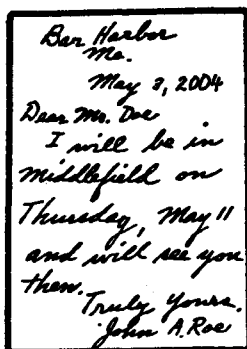 Bar Harbor
Me.
May 3, 2004
Dear Mr. Doe
I will be in
Middlefield on
Thursday, May 11
and will see you
then.
Truly yours,
John A. Roe